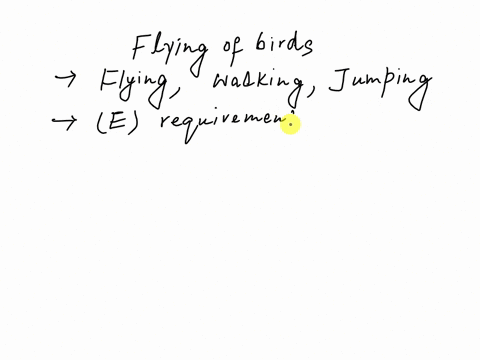 Flying of birds
→ Flying, walking, Jumping
→ (E) requirement